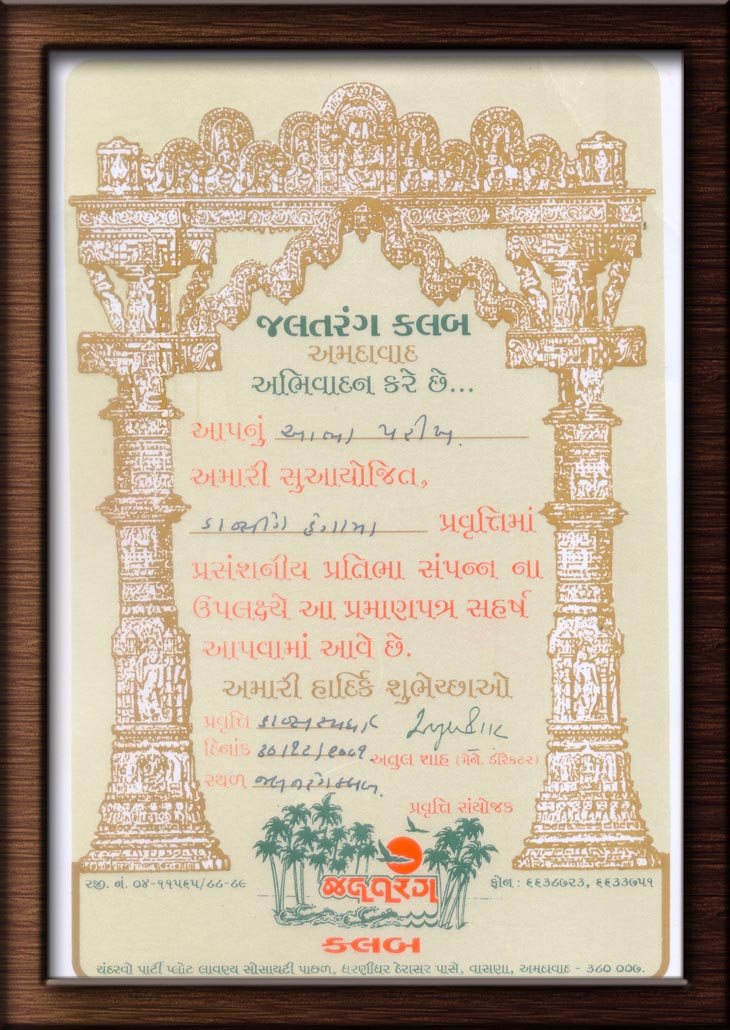 જલતરંગ કલબ
અમદાવાદ
અભિવાદન કરે છે...
આપનું આભા પરીખ.
અમારી સુઆયોજિત,
ડાન્સીંગ હંગામા પ્રવૃત્તિમાં
પ્રસંશનીય પ્રતિભા સંપન્ન ના
ઉપલક્ષ્યે આ પ્રમાણપત્ર સહર્ષ
આપવામાં આવે છે.
અમારી હાર્દિક શુભેચ્છાઓ
પ્રવૃત્તિ
દિનાંક ૩૦/૧૨/૨૦૦૧
અતુલ શાહ (મેને. ડીરેક્ટર)
સ્થળ જલતરંગ ક્લબ.
પ્રવૃત્તિ સંયોજક
રજી. નં. ૦૪-૧૧૫૬૫/૮૮-૮૯
ફોન : ૬૬૩૮૭૨૩, ૬૬૩૩૭૫૧
જલતરંગ
કલબ
ચંદરવો પાર્ટી પ્લોટ લાવણ્ય સોસાયટી પાછળ, ધરણીધર દેરાસર પાસે, વાસણા, અમદાવાદ - ૩૮૦ ૦૦૭.